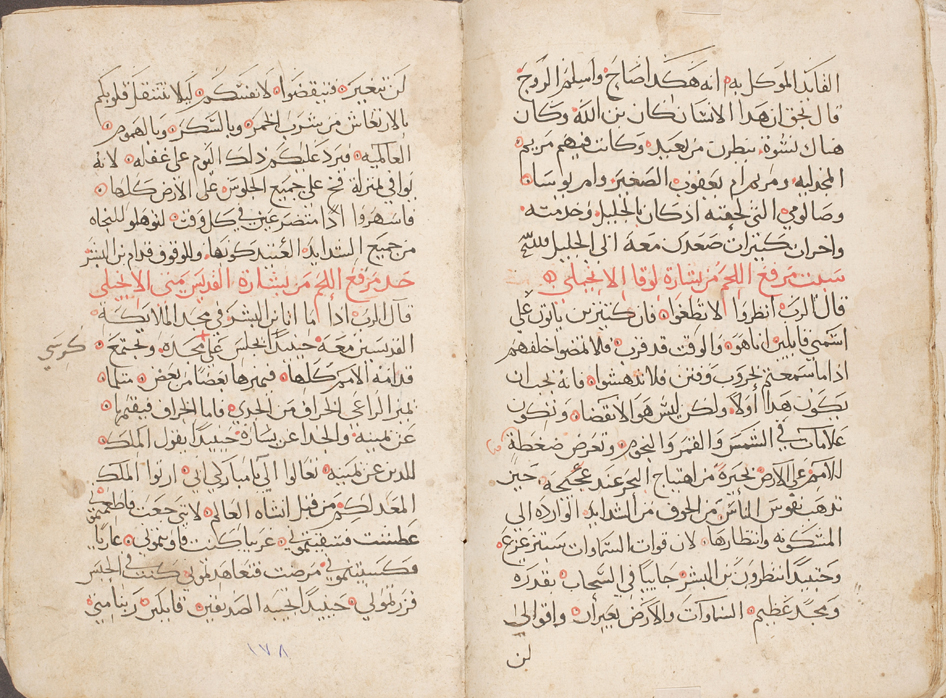 القائد الموكل به انه هكدا صاح واسلم الروح
قال بحق ان هدا الانسان كان بن الله وكان
هناك نسوة ينظرن من بعيد وكانت فيهم مريم
المجدليه ومريم ام يعقوب الصغير وام يوسا
وصالومي التي لحقته اذ كان بالجليل وخدمته
واخران كثيرات صعدن معه الى الجليل
سبت مرفع اللحم من بشارة لوقا الانجيلي
قال الرب انظروا لا تطغوا فان كثيرين ياتون على
اسمي قايلين انا هو والوقت قد قرب فلا تمضوا خلفهم
اذا ما سمعتم بحروب وفتن فلا تدهشوا فانه يجب ان
يكون هدا أولا ولكن ليس هو الانقضا وتكون
علامات في الشمس والقمر والنجوم وتعرض ضغطة
للامم على الارض بحيرة من اهتياج البحر عند عجيجه حين
تدهب نفوس الناس من الخوف من الشدايد الواردة الى
المسكونه وانتظارها لان قوات السماوات ستتزعزع
وحينيدا تنظرون بن البشر جاييا في السحاب بقدرة
ومجد عظيم السماوات والارض يعبران واقوالي
لن
لن تتغير فتيقضوا لانفسكم ليلا تتثقل قلوبكم
بالارتعاش من شرب الخمر وبالسكر وبالهموم
العالميه فيرد عليكم دلك اليوم على غفله لانه
يوافي بمنزلة فخ على جميع الجلوس على الارض كلها
فاسهروا ادا متضرعين في كل وقت لتوهلو للنجاه
من جميع الشدايد العتيد كونها والوقوف قدام بن البشر
حد مرفع اللحم من بشارة القديس متى الانجيلي
قال الرب ادا ما اتا بن البشر في مجد الملايكة
القديسين معه حينيدا يجلس على مجده وتجتمع
كرسي
قدامه الامم كلها فيميزها بعضا من بعض مثلما
يميز الراعي الخراف من الجدي فاما الخراف فيقيمها
عن يمينه والجدا عن يساره حينيدا يقول الملك
للدين عن يمينه تعالوا الي يا مباركي ابي ارتوا الملك
المعد لكم من قبل انشاه العالم لانني جعت فاطعمتموني
عطشت فسقيتموني غريبا كنت فاويتموني عاريا
فكسيتموني مرضت فتعاهدتموني كنت في الحبس
فزرتموني حينيدا تجيبه الصديقين قايلين ربنا متى
١٧٨